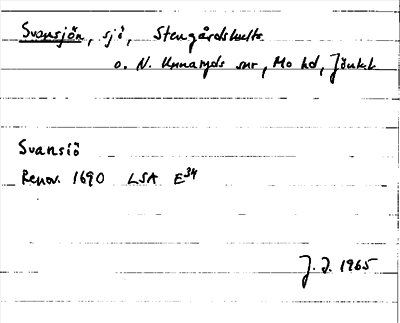 Svansjön, sjö, Stengårdshults
o. N. Unnaryds snr, Mo hd, Jönk.l.
Svansiö
Renov. 1690 LSA E34
J. J. 1965